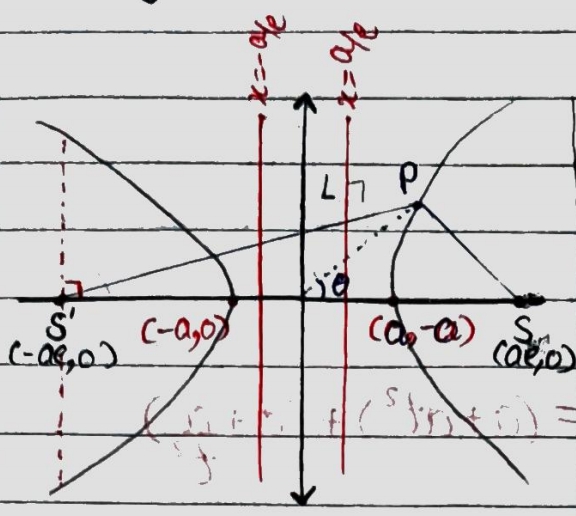 x=-a/e
x=a/e
L
P
θ
S'
(-ae,0)
(-a,0)
(a,-a)
S
(ae,0)